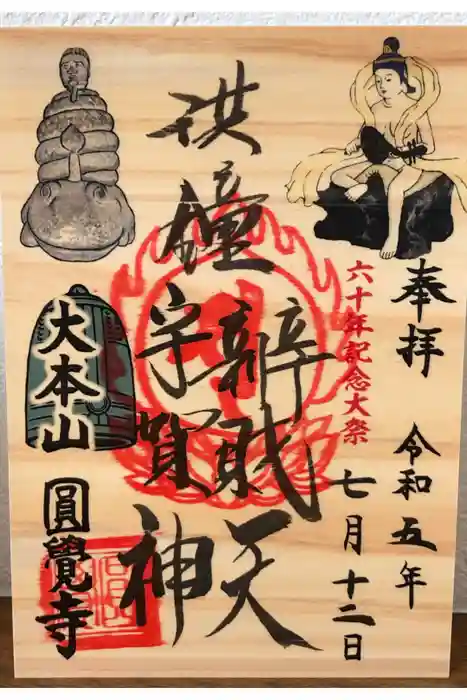 奉拝 令和五年
六十年記念大祭
七月十二日
洪鐘
辨財天
宇賀神
大本山
圓覺寺